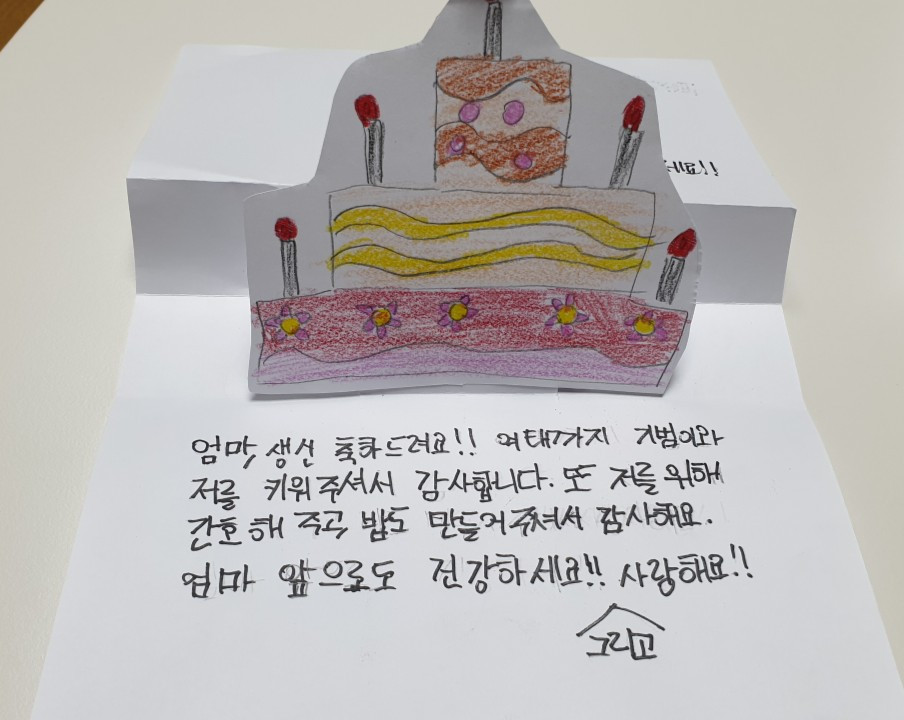 엄마, 생신 축하드려요!! 여태까지 기범이와
저를 키워주셔서 감사합니다. 또 저를 위해
간호해 주고 밥도 만들어주셔서 감사해요.
엄마 앞으로도 건강하세요!! 사랑해요!!
그리고